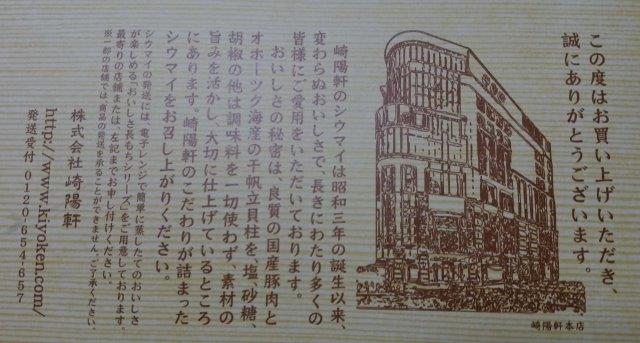 この度はお買い上げいただき、
誠にありがとうございます。
崎陽軒本店
崎陽軒のシウマイは昭和三年の誕生以来、
変わらぬおいしさで、長きにわたり多くの
皆様にご愛用をいただいております。
おいしさの秘密は、良質の国産豚肉と
オホーツク海産の干帆立貝柱を、塩、砂糖、
胡椒の他は調味料を一切使わず、素材の
旨みを活かし、大切に仕上げているところ
にあります。崎陽軒のこだわりが詰まった
シウマイをお召し上がりください。
シウマイの発送には、電子レンジで簡単に蒸したてのおいしさ
が楽しめる「おいしさ長もちシリーズ」をご用意しております。
最寄りの店舗または、左記までお申し付けください。
※一部の店舗では、商品の発送を承ることができません。ご了承ください。
株式会社 崎陽軒
http://www.kiyoken.com/
発送受付 0120-654-657